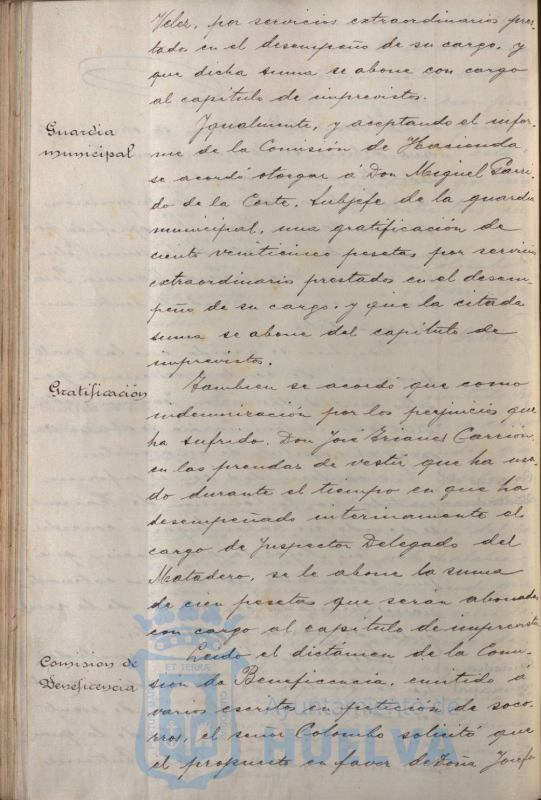 Velez, por servicios extraordinarios pres-
tados en el desempeño de su cargo, y
que dicha suma se abone con cargo
al capitulo de imprevistos.
Guardia
municipal
Igualmente, y aceptando el infor-
me de la Comisión de Hacienda,
se acordó otorgar á Don Miguel Garri-
do de la Corte, Subjefe de la guardia
municipal, una gratificación de
ciento veinticinco pesetas por servicios
extraordinarios prestados en el desem-
peño de su cargo, y que la citada
suma se abone del capitulo de
imprevistos.
Gratificación
Tambien se acordó que como
indemnización por los perjuicios que
ha sufrido, Don José Carrión,
en las prendas de vestir que ha usa-
do durante el tiempo en que ha
desempeñado interinamente el
cargo de Inspector Delegado del
Matadero, se le abone la suma
de cien pesetas que serán abonadas
con cargo al capitulo de imprevistos.
Comisión de
Beneficencia
Leido el dictamen de la Comi-
sión de Beneficencia, emitido á
varios escritos en petición de soco-
rros, el señor Colombo solicitó que
el propuesto en favor de Doña Josefa
Ayuntamiento de
HUELVA